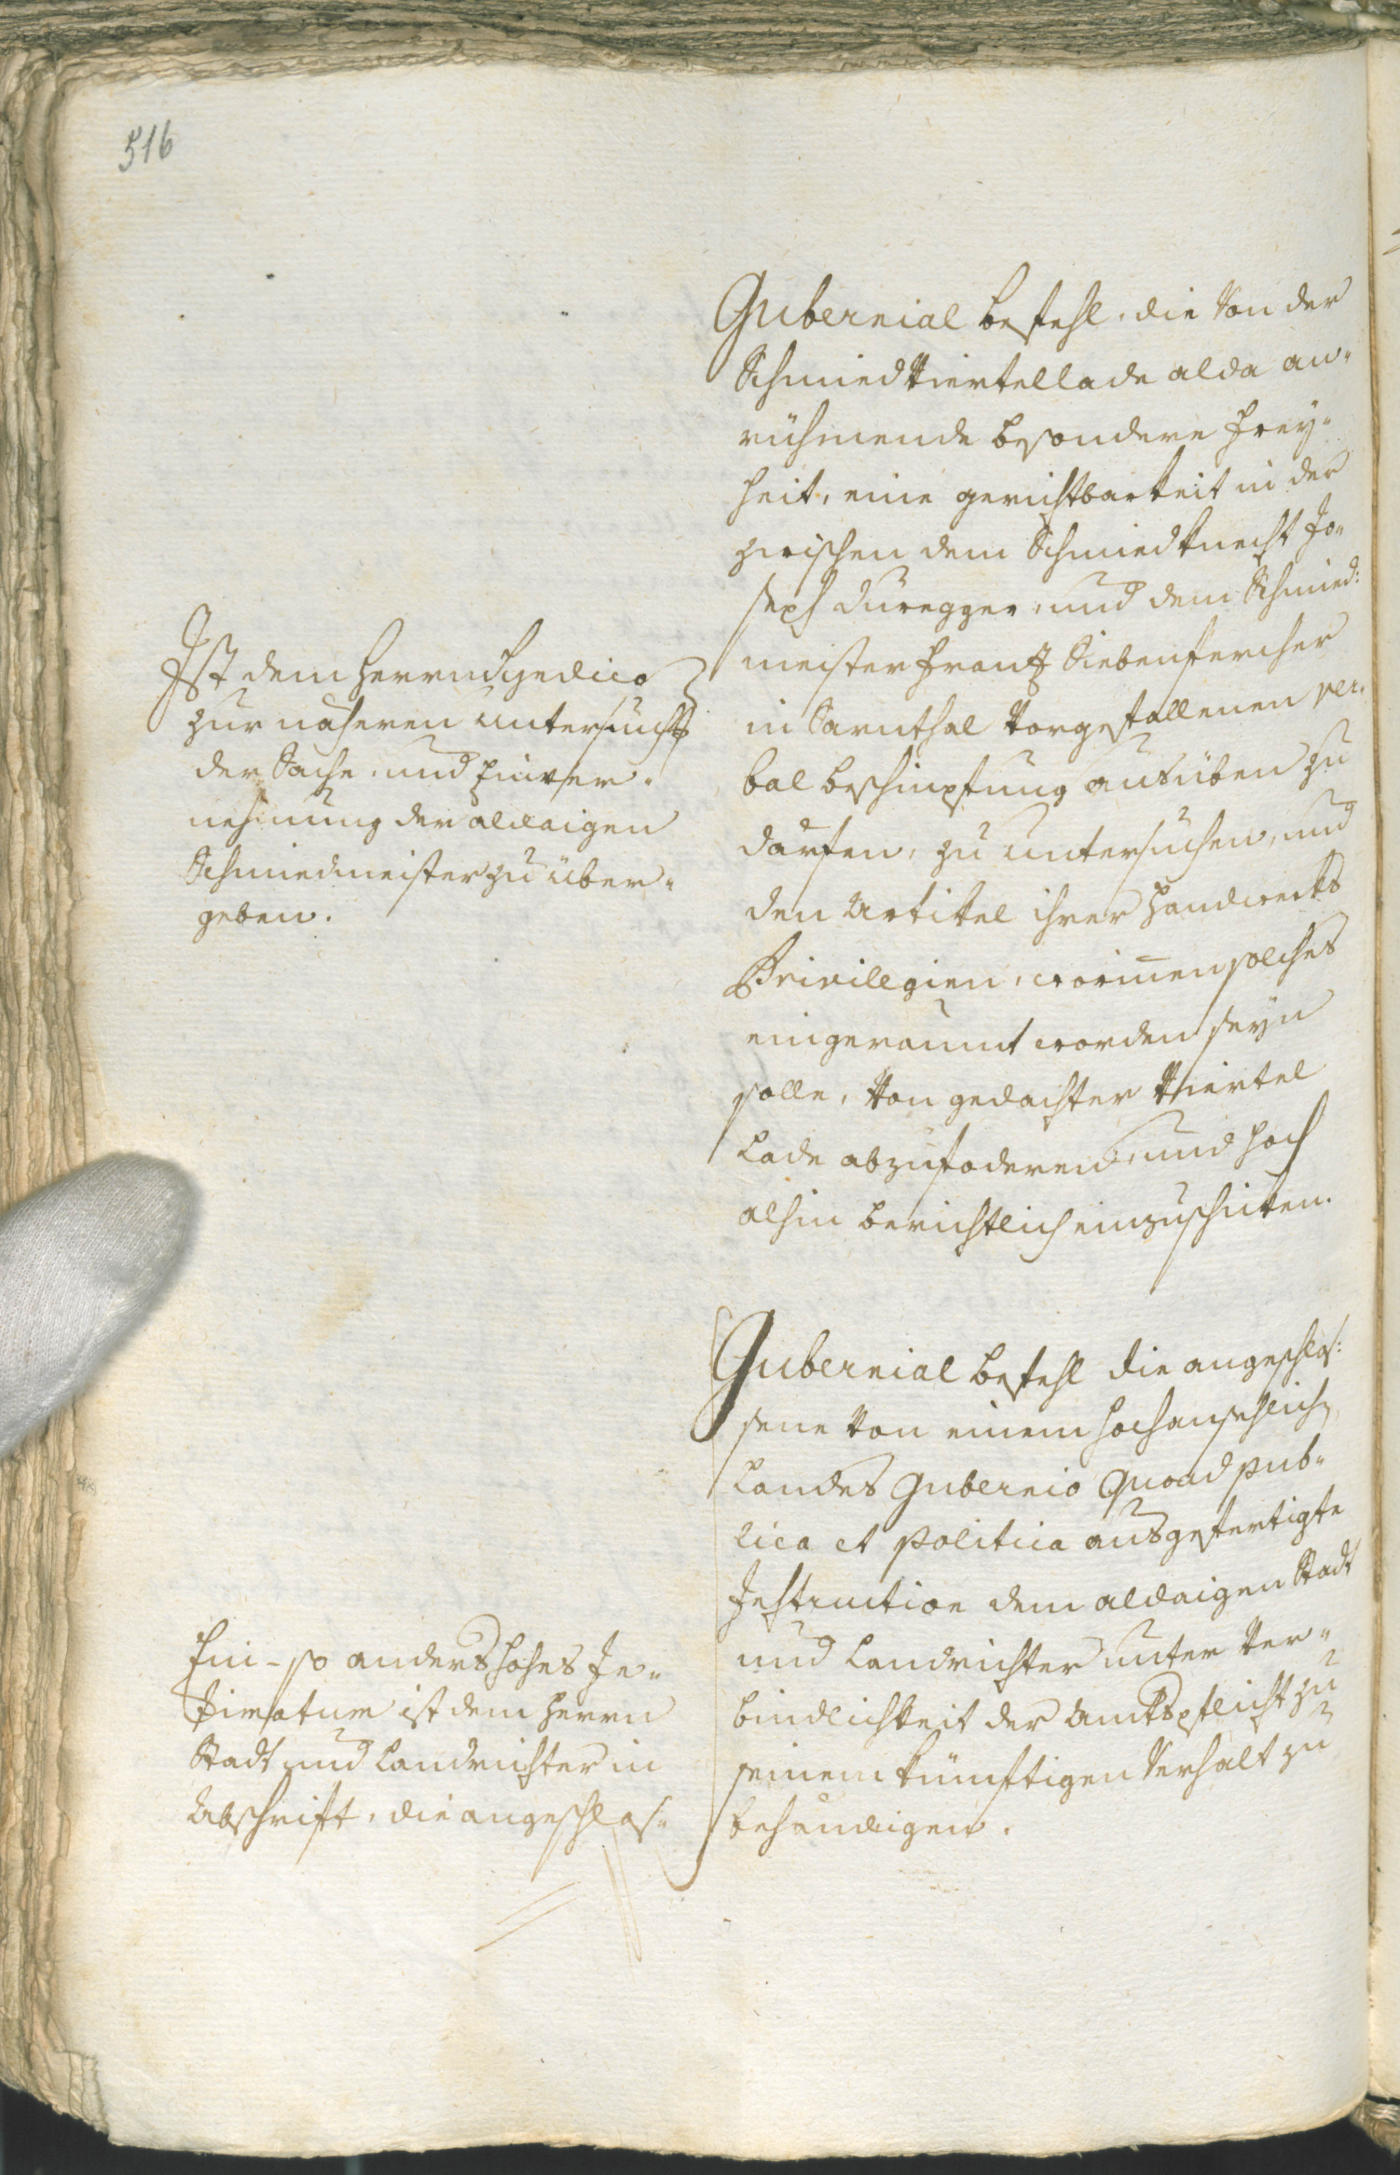 516
Gubernial befehl, die von der
Schmiedviertellade alda an„
rühmende besondere Frey„
heit, eine gerichtbarkeit in der
zwischen dem Schmiedknecht Jo„
seph Duregger, und dem Schmied:
meister Frantz Siebenfercher
in Sarnthal vorgefallenen ver„
bal beschimpfung ausüben zu
därfen, zu untersuchen, und
den Artikel ihrer Handwercks
Privilegien, worinnen solches
eingeraumt worden seyn
solle, von gedachter Viertel
Lade abzufoderen, und hoch
alhin berichtlich einzuschicken.
Ist dem Herrn Syndico
zur näheren untersuchg
der Sache, und Einver„
nehmung der aldaigen
Schmiedmeister zu über„
geben.
Gubernial befehl die angeschlos:
sene von einem hochansehlichen
Landes Gubernio Quoad pub„
lica et politica ausgefertigte
Instruction dem aldaigen Stadt
und Landrichter unter ver„
bindlichkeit der Amtspflicht zu
seinem künftigen Verhalt zu
behändigen.
Ein- so anders hohes In„
timatum ist dem Herrn
Stadt und Landrichter in
Abschrift, die angeschlos„